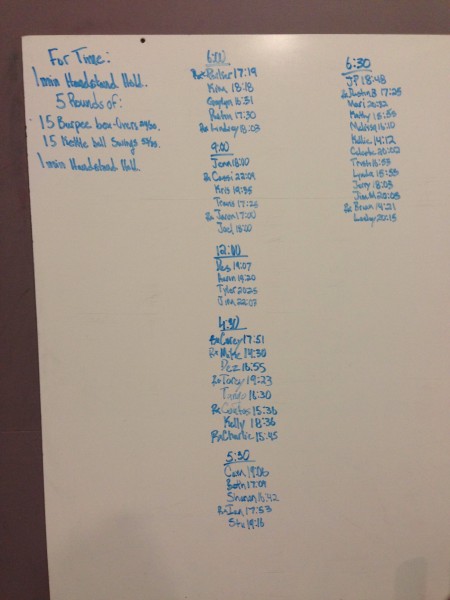 For Time:
1 min Handstand Hold.
5 Rounds of:
15 Burpee box-overs 24/20.
15 Kettle bell Swings
1 min Handstand Hold
6:00
Rx 17:19
Kim 18:18
16:51
17:30
Rx Lindsey 18:03
9:00
Jenn 18:10
Rx Cassi 22:09
Kris 19:35
Travis 17:25
Rx Jason 17:00
Joel 18:00
12:00
Des 19:07
Aaron
Tyler 20:25
Jim 22:07
4:30
Rx Corey 17:51
Rx Mike 14:30
Dez 16:55
Rx Tony 19:23
16:30
Rx 15:36
Kelly 18:36
Rx Charlie 15:45
5:30
Cam 19:06
Beth 17:09
Shannon
Rx Ian 17:53
Stu 19:16
6:30
JP 18:48
Rx Dustin B 17:25
Mari
Kathy 15:55
Melissa 16:10
Kellie 14:12
Celeste 20:02
Trish 16:53
Lynda 15:55
Jerry 18:03
Jim M 20:03
Rx Brian 14:21
20:15